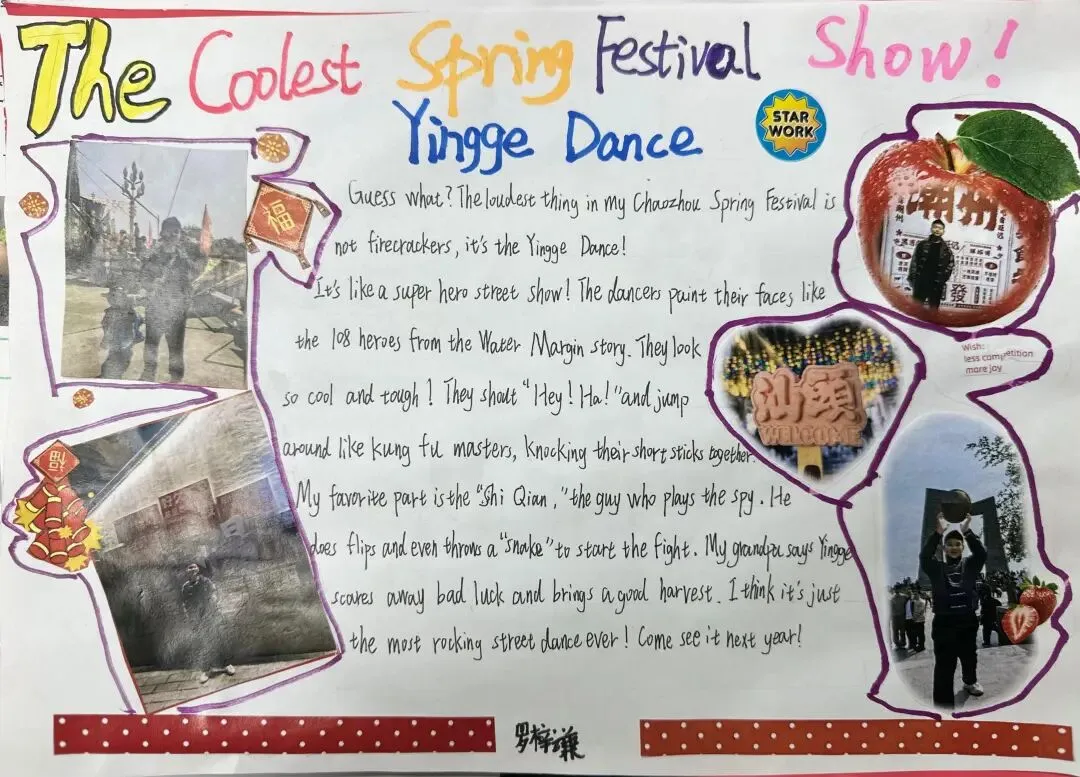 The Coolest Spring Festival Show!
Yingge Dance
STAR
WORK
Guess what? The loudest thing in my Chaozhou Spring Festival is
not firecrackers, it's the Yingge Dance!
It's like a super hero street show! The dancers paint their faces like
the 108 heroes from the Water Margin story. They look
so cool and tough! They shout "Hey! Ha!" and jump
around like kung fu masters, knocking their short sticks together.
My favorite part is the "Shi Qian," the guy who plays the spy. He
does flips and even throws a "snake" to start the fight. My grandpa says Yingge
scares away bad luck and brings a good harvest. I think it's just
the most rocking street dance ever! Come see it next year!
福
福
潮州
發
汕頭
WELCOME
Wish:
less competition
more joy
罗梓谦